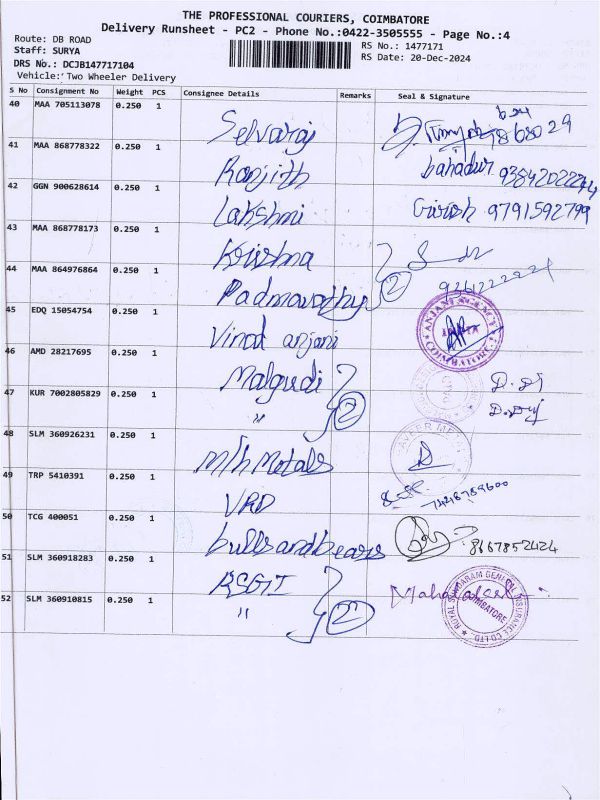 THE PROFESSIONAL COURIERS, COIMBATORE
Delivery Runsheet - PC2 - Phone No.:0422-3505555 - Page No.:4
Route: DB ROAD
Staff: SURYA
DRS No.: DCJB147717104
Vehicle: Two Wheeler Delivery
RS No.: 1477171
RS Date: 20-Dec-2024
S No Consignment No Weight PCS Consignee Details Remarks Seal & Signature
40 MAA 705113078 0.250 1 Selvaraj
41 MAA 868778322 0.250 1 Ranjith bahadur
42 GGN 900628614 0.250 1 Lakshmi Girish 9791592799
43 MAA 868778173 0.250 1 Krishna
44 MAA 864976864 0.250 1 Padmavathy 2
45 EDQ 15054754 0.250 1 Vinod anjani ANJANI AGENCY COIMBATORE
46 AMD 28217695 0.250 1 Malgudi
47 KUR 7002805829 0.250 1 " 2
48 SLM 360926231 0.250 1 M/h Metals
49 TRP 5410391 0.250 1 VRD
50 TCG 400051 0.250 1 bulls and bears 8667852424
51 SLM 360918283 0.250 1 RSGI
52 SLM 360910815 0.250 1 " 2 ROYAL SUNDARAM GENERAL INSURANCE CO LTD COIMBATORE